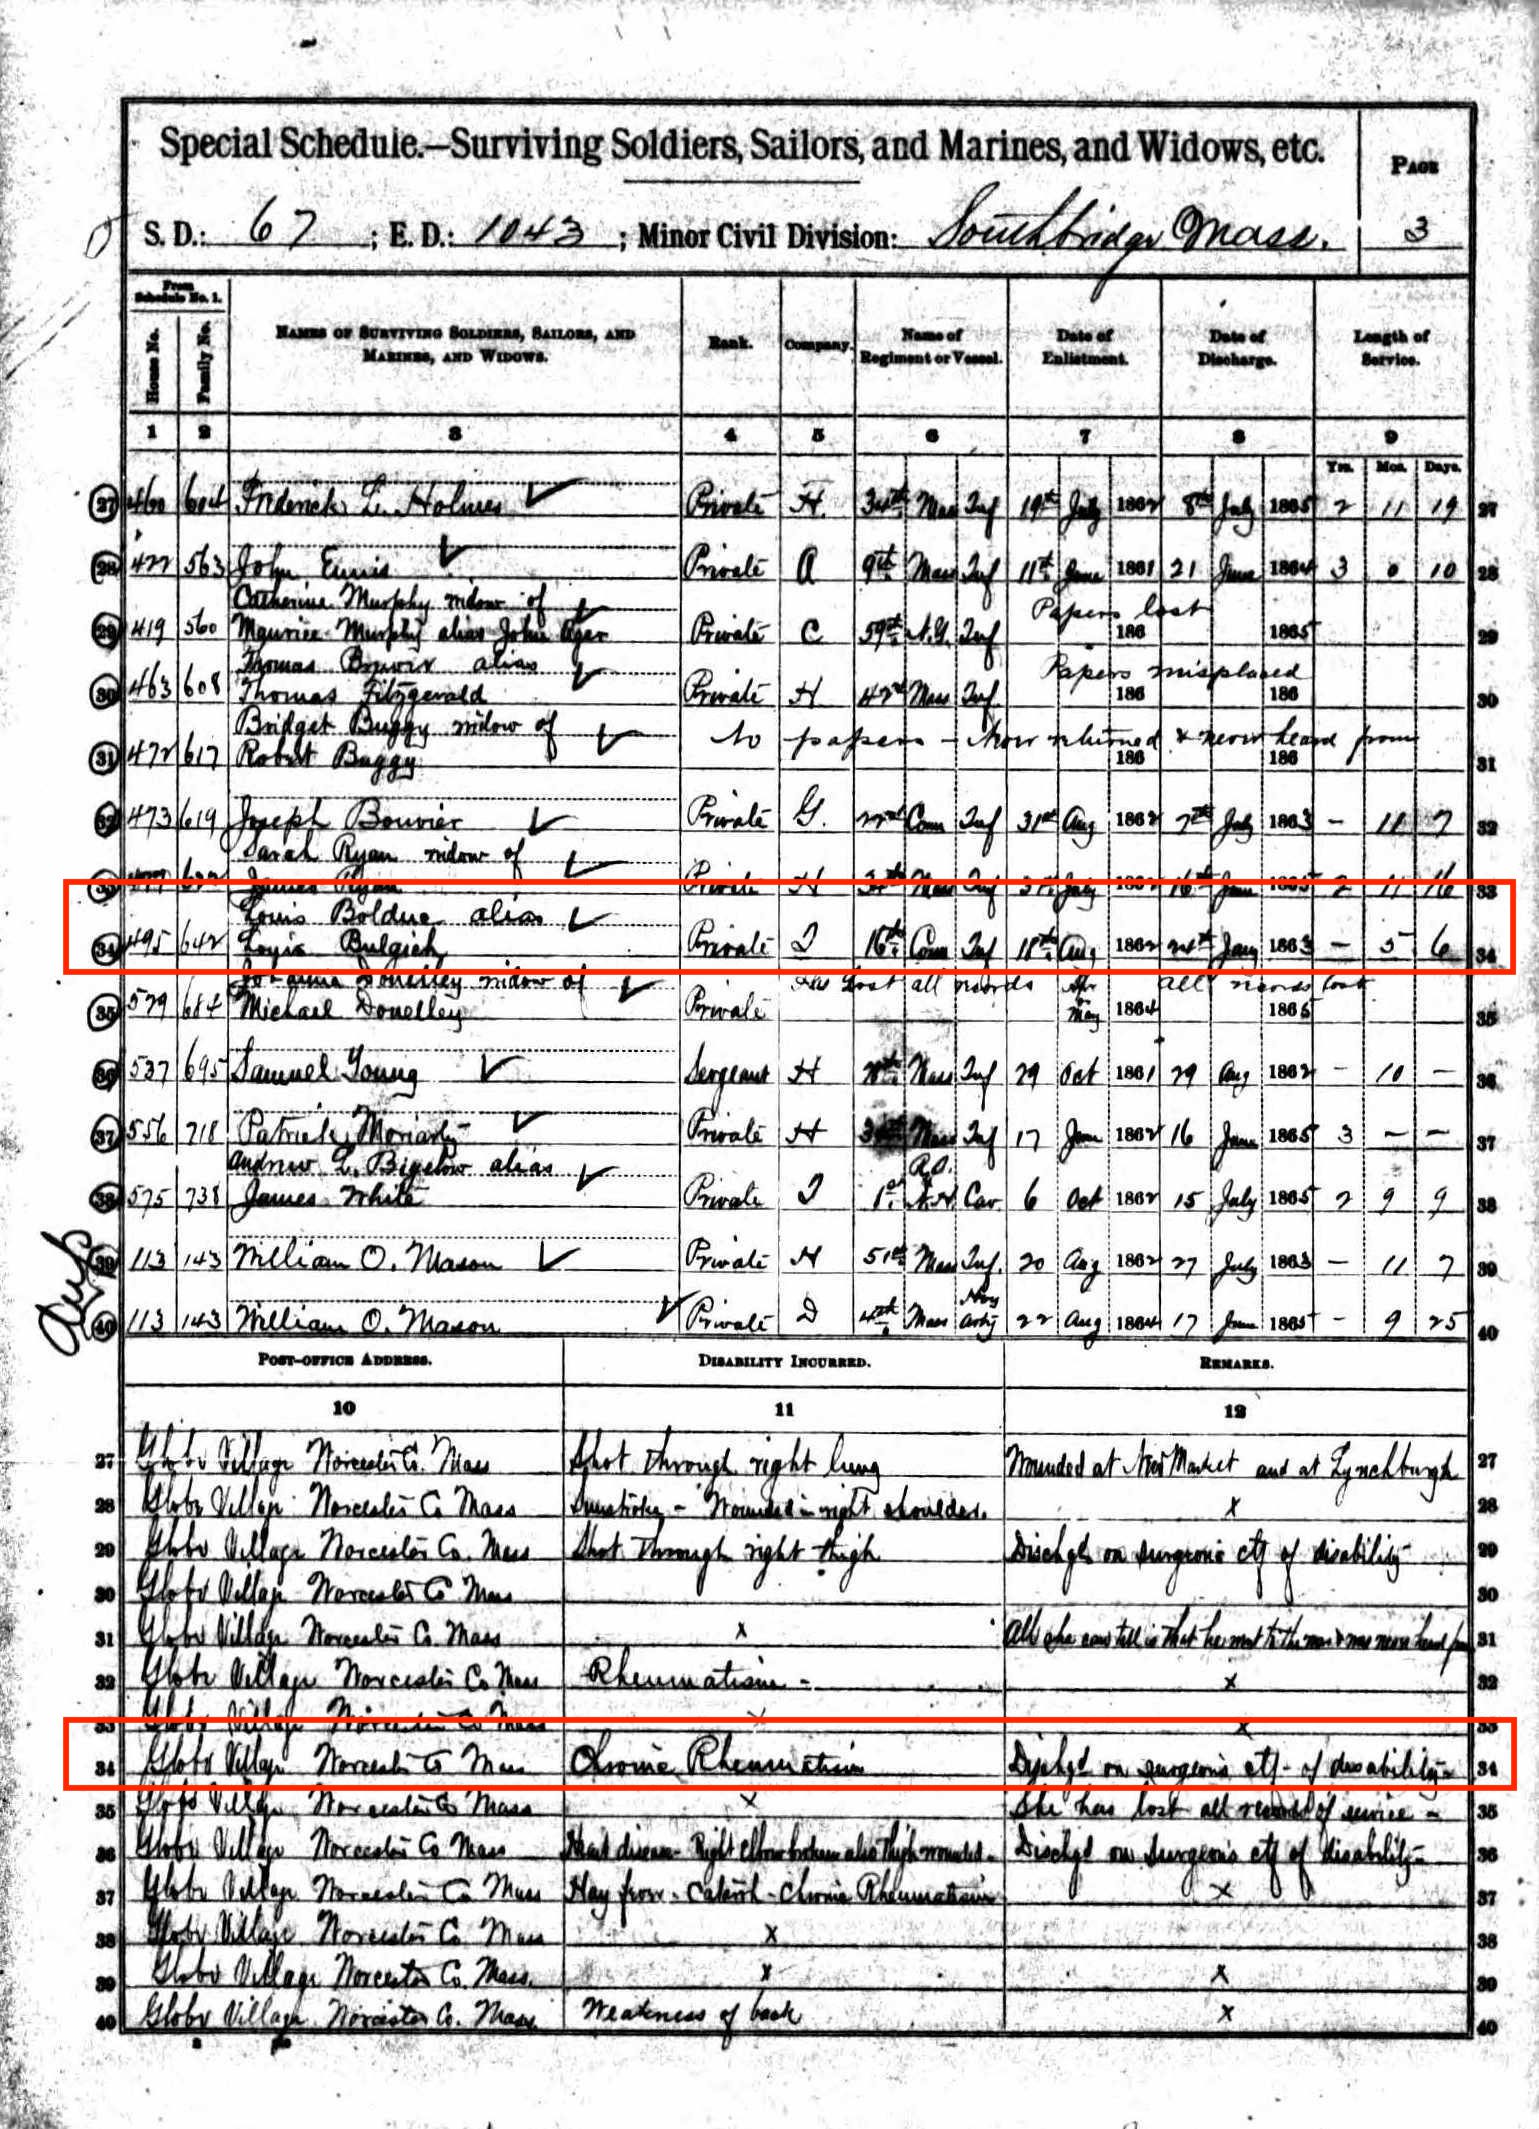 Special Schedule.—Surviving Soldiers, Sailors, and Marines, and Widows, etc.
PAGE
S. D.: 67 ; E. D.: 1043 ; Minor Civil Division: Southbridge Mass. 3
From Schedule No. 1.
House No. Family No. NAMES OF SURVIVING SOLDIERS, SAILORS, AND MARINES, AND WIDOWS. Rank. Company. Name of Regiment or Vessel. Date of Enlistment. Date of Discharge. Length of Service.
1 2 3 4 5 6 7 8 9
Yrs. Mos. Days.
27 460 604 Frederick L. Holmes Private H. 34th Mass Inf 19th July 1862 8th July 1865 2 11 19 27
28 422 563 John Ennis Private A 9th Mass Inf 11th June 1861 21 June 1864 3 0 10 28
Catherine Murphy widow of Papers lost
29 419 560 Maurice Murphy alias John Private C 59th N.Y. Inf 186 1865 29
Thomas alias Papers misplaced
30 463 608 Thomas Fitzgerald Private H 42nd Mass Inf 186 186 30
Bridget Buggy widow of No papers - never returned & never heard from
31 472 617 Robert Buggy 186 186 31
32 473 619 Joseph Bouvier Private G. 22nd Conn Inf 31st Aug 1862 7th July 1863 - 11 7 32
Sarah Ryan widow of
33 622 James Ryan Private H 34th Mass Inf 31st July 1862 16th June 1865 2 11 16 33
Louis Bolduc alias
34 495 642 Louis Bulgick Private I 16th Conn Inf 18th Aug 1862 24th Jany 1863 - 5 6 34
Johanna Donelley widow of Has lost all records Apr or all records lost
35 579 684 Michael Donelley Private May 1864 1865 35
36 537 695 Samuel Young Sergeant H Mass Inf 29 Oct 1861 29 Aug 1862 - 10 - 36
37 556 718 Patrick Moriarty Private H Mass Inf 17 June 1862 16 June 1865 3 - - 37
Andrew L. Bigelow alias
38 575 738 James White Private I 1st N.H. Cav. 6 Oct 1862 15 July 1865 2 9 9 38
39 113 143 William O. Mason Private H 51st Mass Inf. 20 Aug 1862 27 July 1863 - 11 7 39
40 113 143 William O. Mason Private D 4th Mass Hvy Arty 22 Aug 1864 17 June 1865 - 9 25 40
POST-OFFICE ADDRESS. DISABILITY INCURRED. REMARKS.
10 11 12
27 Globe Village Worcester Co. Mass Shot through right lung Wounded at New Market and at Lynchburgh 27
28 Globe Village Worcester Co Mass Sunstroke - Wounded in right shoulder. x 28
29 Globe Village Worcester Co. Mass Shot through right thigh Dischgd on surgeons ctf of disability 29
30 Globe Village Worcester Co Mass 30
31 Globe Village Worcester Co. Mass x All she can tell is that he went to the war & was never heard from 31
32 Globe Village Worcester Co Mass Rheumatism - x 32
33 Globe Village Worcester Co Mass x x 33
34 Globe Village Worcester Co Mass Chronic Rheumatism Dischgd on surgeons ctf - of disability - 34
35 Globe Village Worcester Co Mass x She has lost all records of service - 35
36 Globe Village Worcester Co Mass Heart disease - Right elbow broken also thigh wounded - Dischgd on surgeons ctf of disability - 36
37 Globe Village Worcester Co Mass Hay fever - Catarrh - Chronic Rheumatism x 37
38 Globe Village Worcester Co Mass x 38
39 Globe Village Worcester Co. Mass. x x 39
40 Globe Village Worcester Co. Mass. Weakness of back x 40